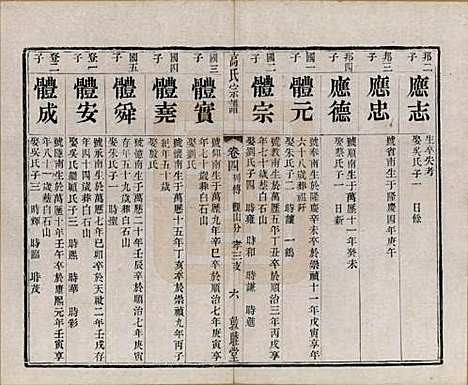 邦二子
應志
生卒失考
娶吳氏子一 日餘
邦三子
應忠
號省南生于隆慶四年庚午
邦四子
應德
號 南生于萬歷十一年癸未
娶蔡氏子一 日新
國一子
體元
號泰南生於隆慶辛未卒於崇禎十一年戊寅享年
六十八歲葬祖
娶朱氏子二 時讓 一鶴
國二子
體宗
號教南生于萬歷五年丁丑卒於順治三年丙戌享
年七十歲葬白石山
娶劉氏子四 時雍 時和 時謙 時進
高氏宗譜
卷四
觀山分孝三支
六
敦睦堂
國三子
體實
號仰南生于萬歷
年七十歲葬白石山
娶劉氏
國四子
體堯
號懷南生于萬歷十五年丁亥卒於崇禎九年丙子
娶殷氏
國五子
體舜
號憶南生于萬歷二十年壬辰卒於順治七年庚寅享
年五十九歲葬白石山
登一子
體安
號承南生于萬歷七年己卯卒於天啟二年壬戌享
年四十四歲葬白石山
娶吳氏子三 時熙 時華 時彩
登二子
體成
號隱南生于萬歷十年壬午卒於康熙元年壬寅享
娶吳氏子三 時輝 時臨 時茂